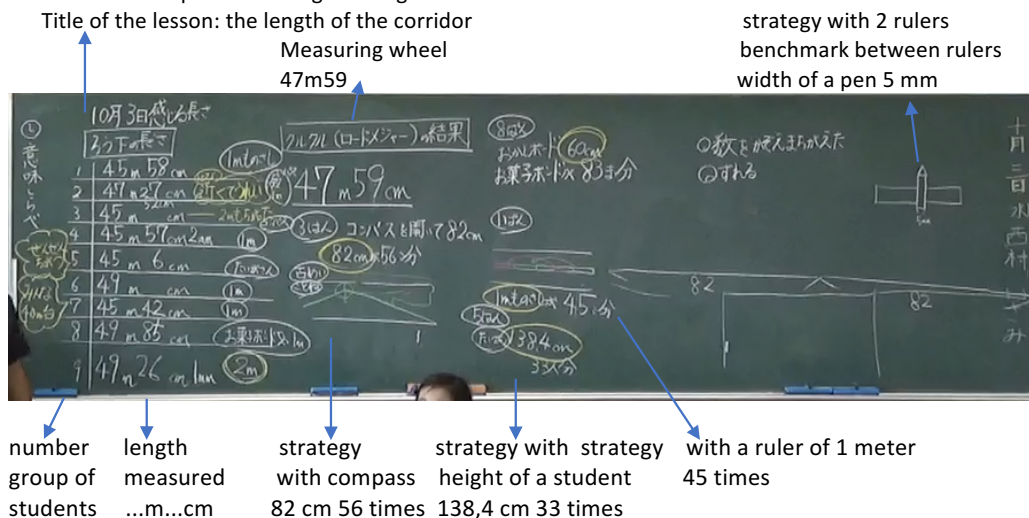 Title of the lesson: the length of the corridor
Measuring wheel
47m59
strategy with 2 rulers
benchmark between rulers
width of a pen 5 mm
10月3日感じる長さ
ろう下の長さ
1 45m58cm
2 47m27cm
3 45m cm
4 45m57cm2mm 1m
5 45m6cm
6 49m cm 1m
7 45m42cm 1m
8 49m85cm
9 49m26cm1mm 2m
1mものさし
クルクル(ロードメジャー)の結果
47m59cm
3はん コンパスを開いて82cm
82cm×56こ分
8はん
おかしボード 60cm
お菓子ボード×83こ分
1はん
1mものさし×45こ分
5はん
138,4cm
33人分
①数をかぞえまちがえた
②ずれる
5mm
82
82
十月三日水西村
number
group of
students
length
measured
...m...cm
strategy
with compass
82 cm 56 times
strategy with
height of a student
138,4 cm 33 times
strategy with a ruler of 1 meter
45 times